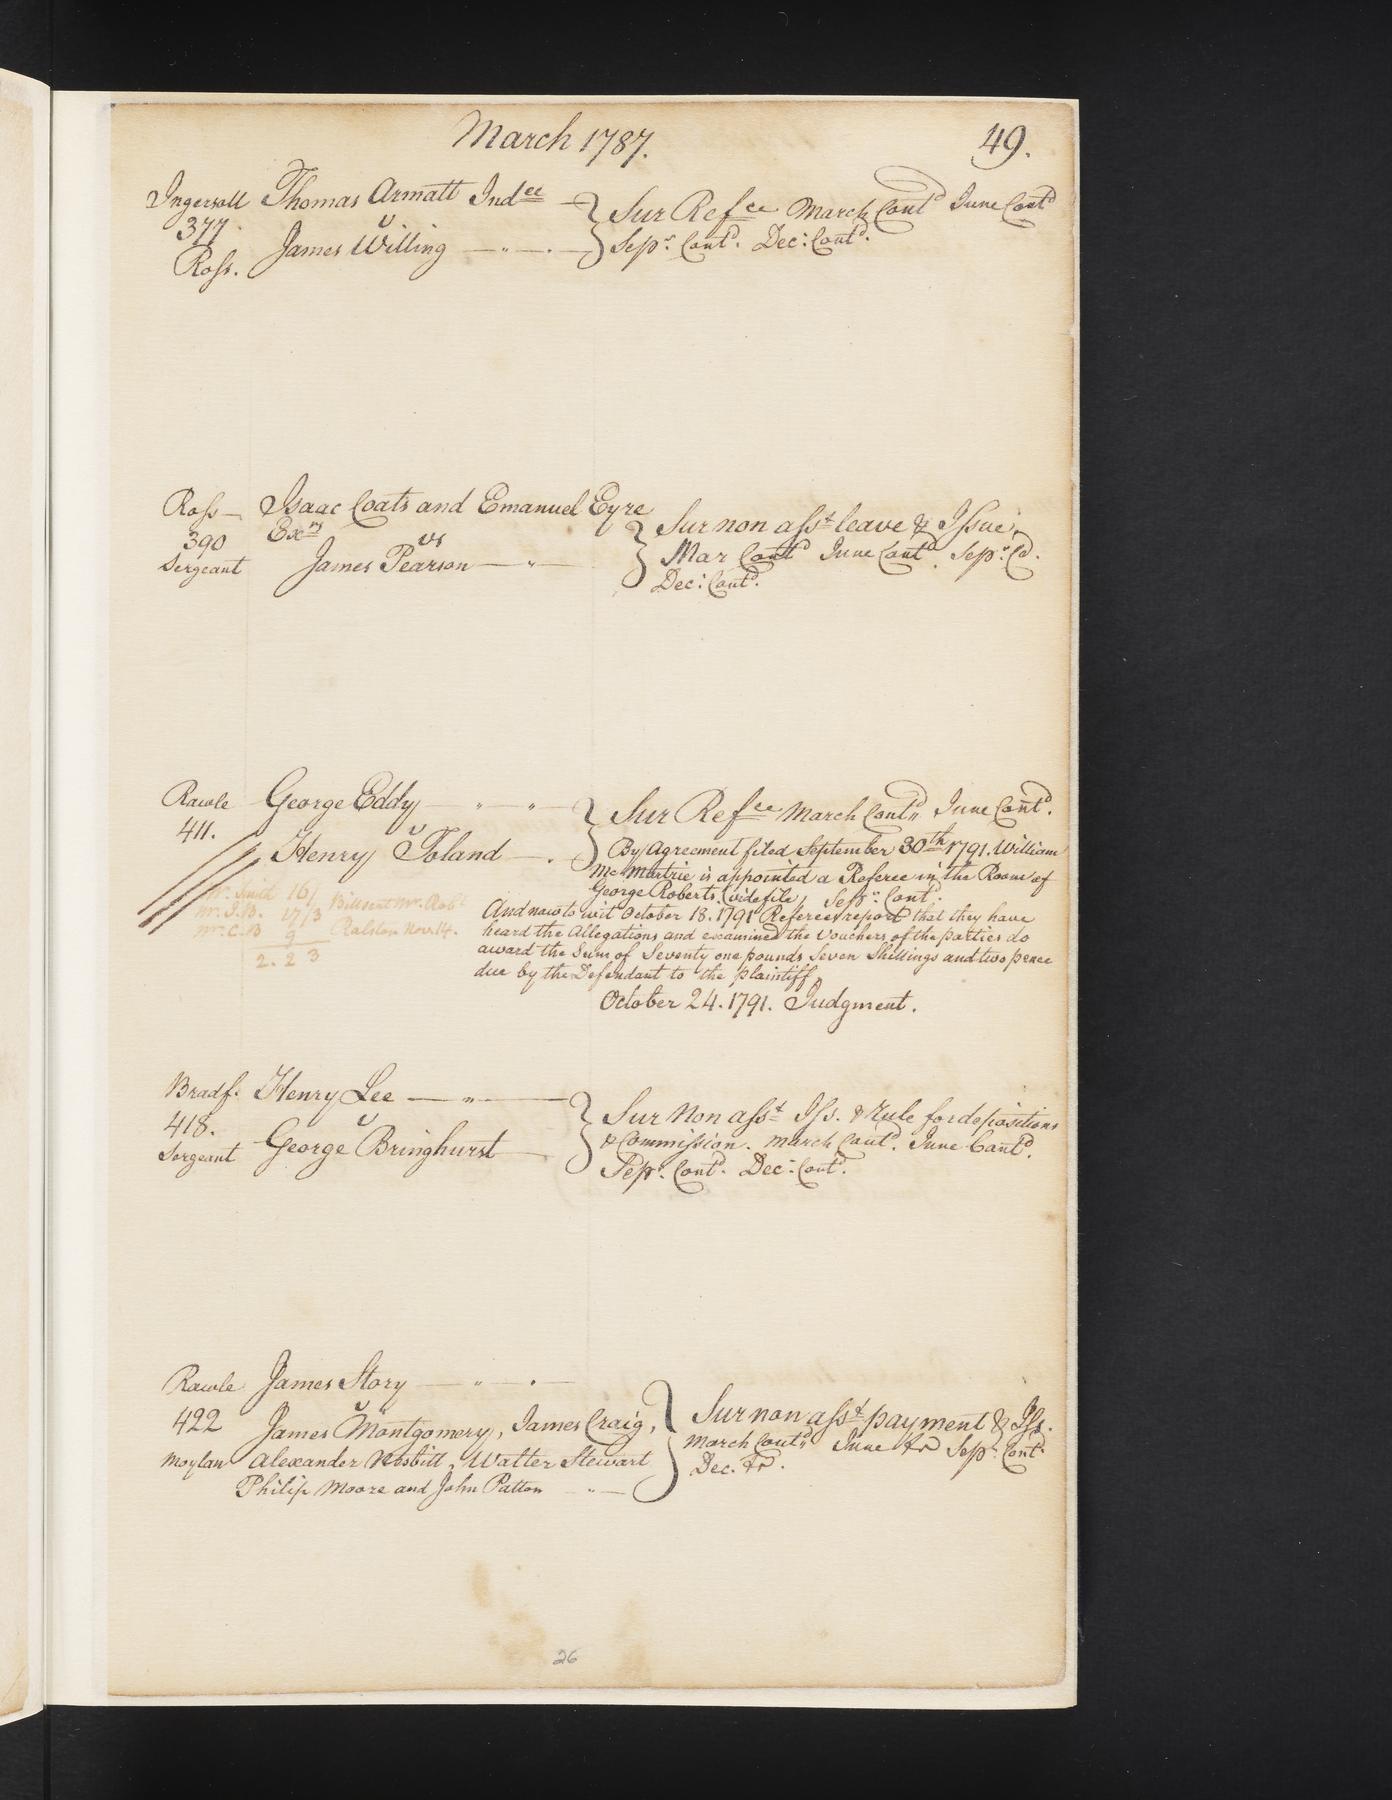 March 1787.
49.
Ingersoll Thomas Armatt Indee } Sur Refce March Contd June Contd
377. v
Ross. James Willing } Sepr. Contd. Dec: Contd.
Ross Isaac Coats and Emanuel Eyre
390 Exrs vs } Sur non asst leave & Issue,
Sergeant James Pearson } Mar Contd June Contd. Sepr. Cd.
Dec: Contd.
Rawle George Eddy } Sur Refce March Contd June Contd.
411. v
Henry Toland } By Agreement filed September 30th 1791. William
Mc Murtrie is appointed a Referee in the Room of
George Roberts. (vide file) Sepr. Contd.
And now to wit October 18. 1791 Referees report that they have
heard the Allegations and examined the Vouchers of the parties do
award the Sum of Seventy one pounds Seven Shillings and two pence
due by the Defendant to the plaintiff
October 24. 1791. Judgment.
Mr. Smith 16/ Bill sent Mr. Robt
Mr. J.B. 17/3 Ralston Nov. 14.
Mr. C. B 9
2. 2 3
Bradf. Henry Lee } Sur Non asst Iss. & Rule for depositions
418. v
Sergeant George Bringhurst } & Commission. March Contd. June Contd.
Sepr. Contd. Dec: Contd.
Rawle James Story
422 v James Montgomery, James Craig, } Sur non asst payment & Iss.
Moylan Alexander Nesbitt, Walter Stewart } March Contd June Sepr. Contd
Philip Moore and John Patton } Dec.
26